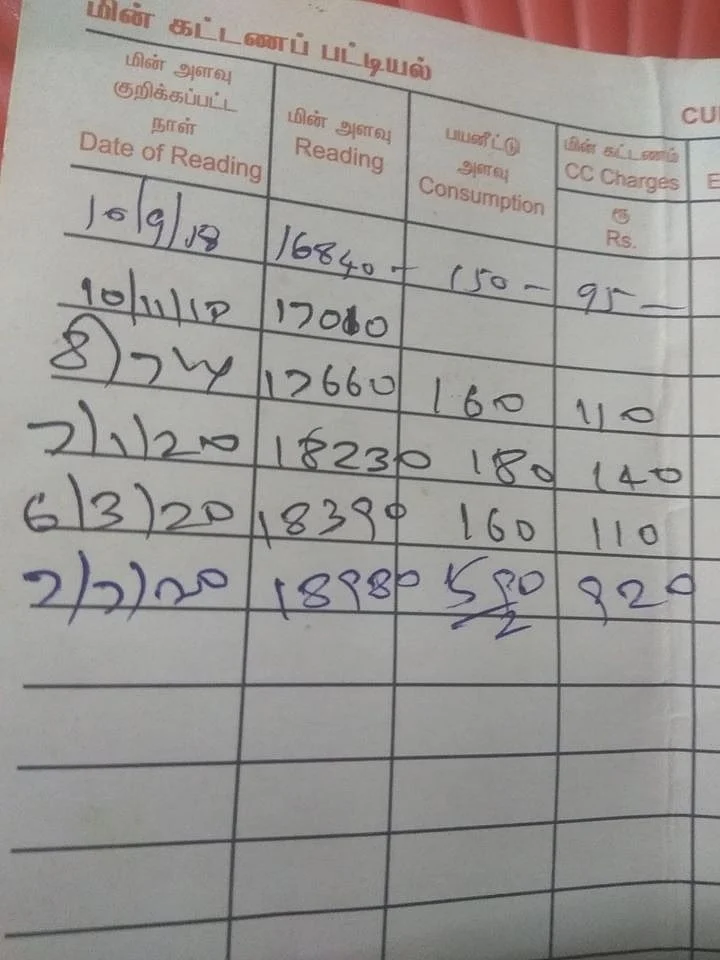 மின் கட்டணப் பட்டியல்
CU
மின் அளவு
குறிக்கப்பட்ட
நாள்
Date of Reading
மின் அளவு
Reading
பயனீட்டு
அளவு
Consumption
மின் கட்டணம்
CC Charges
ரூ
Rs.
E
10/9/18 16840 - 150 - 95 -
10/11/18 17010
8/7/19 17660 160 110
7/1/20 18230 180 140
6/3/20 18390 160 110
7/7/20 18980 590/2 920